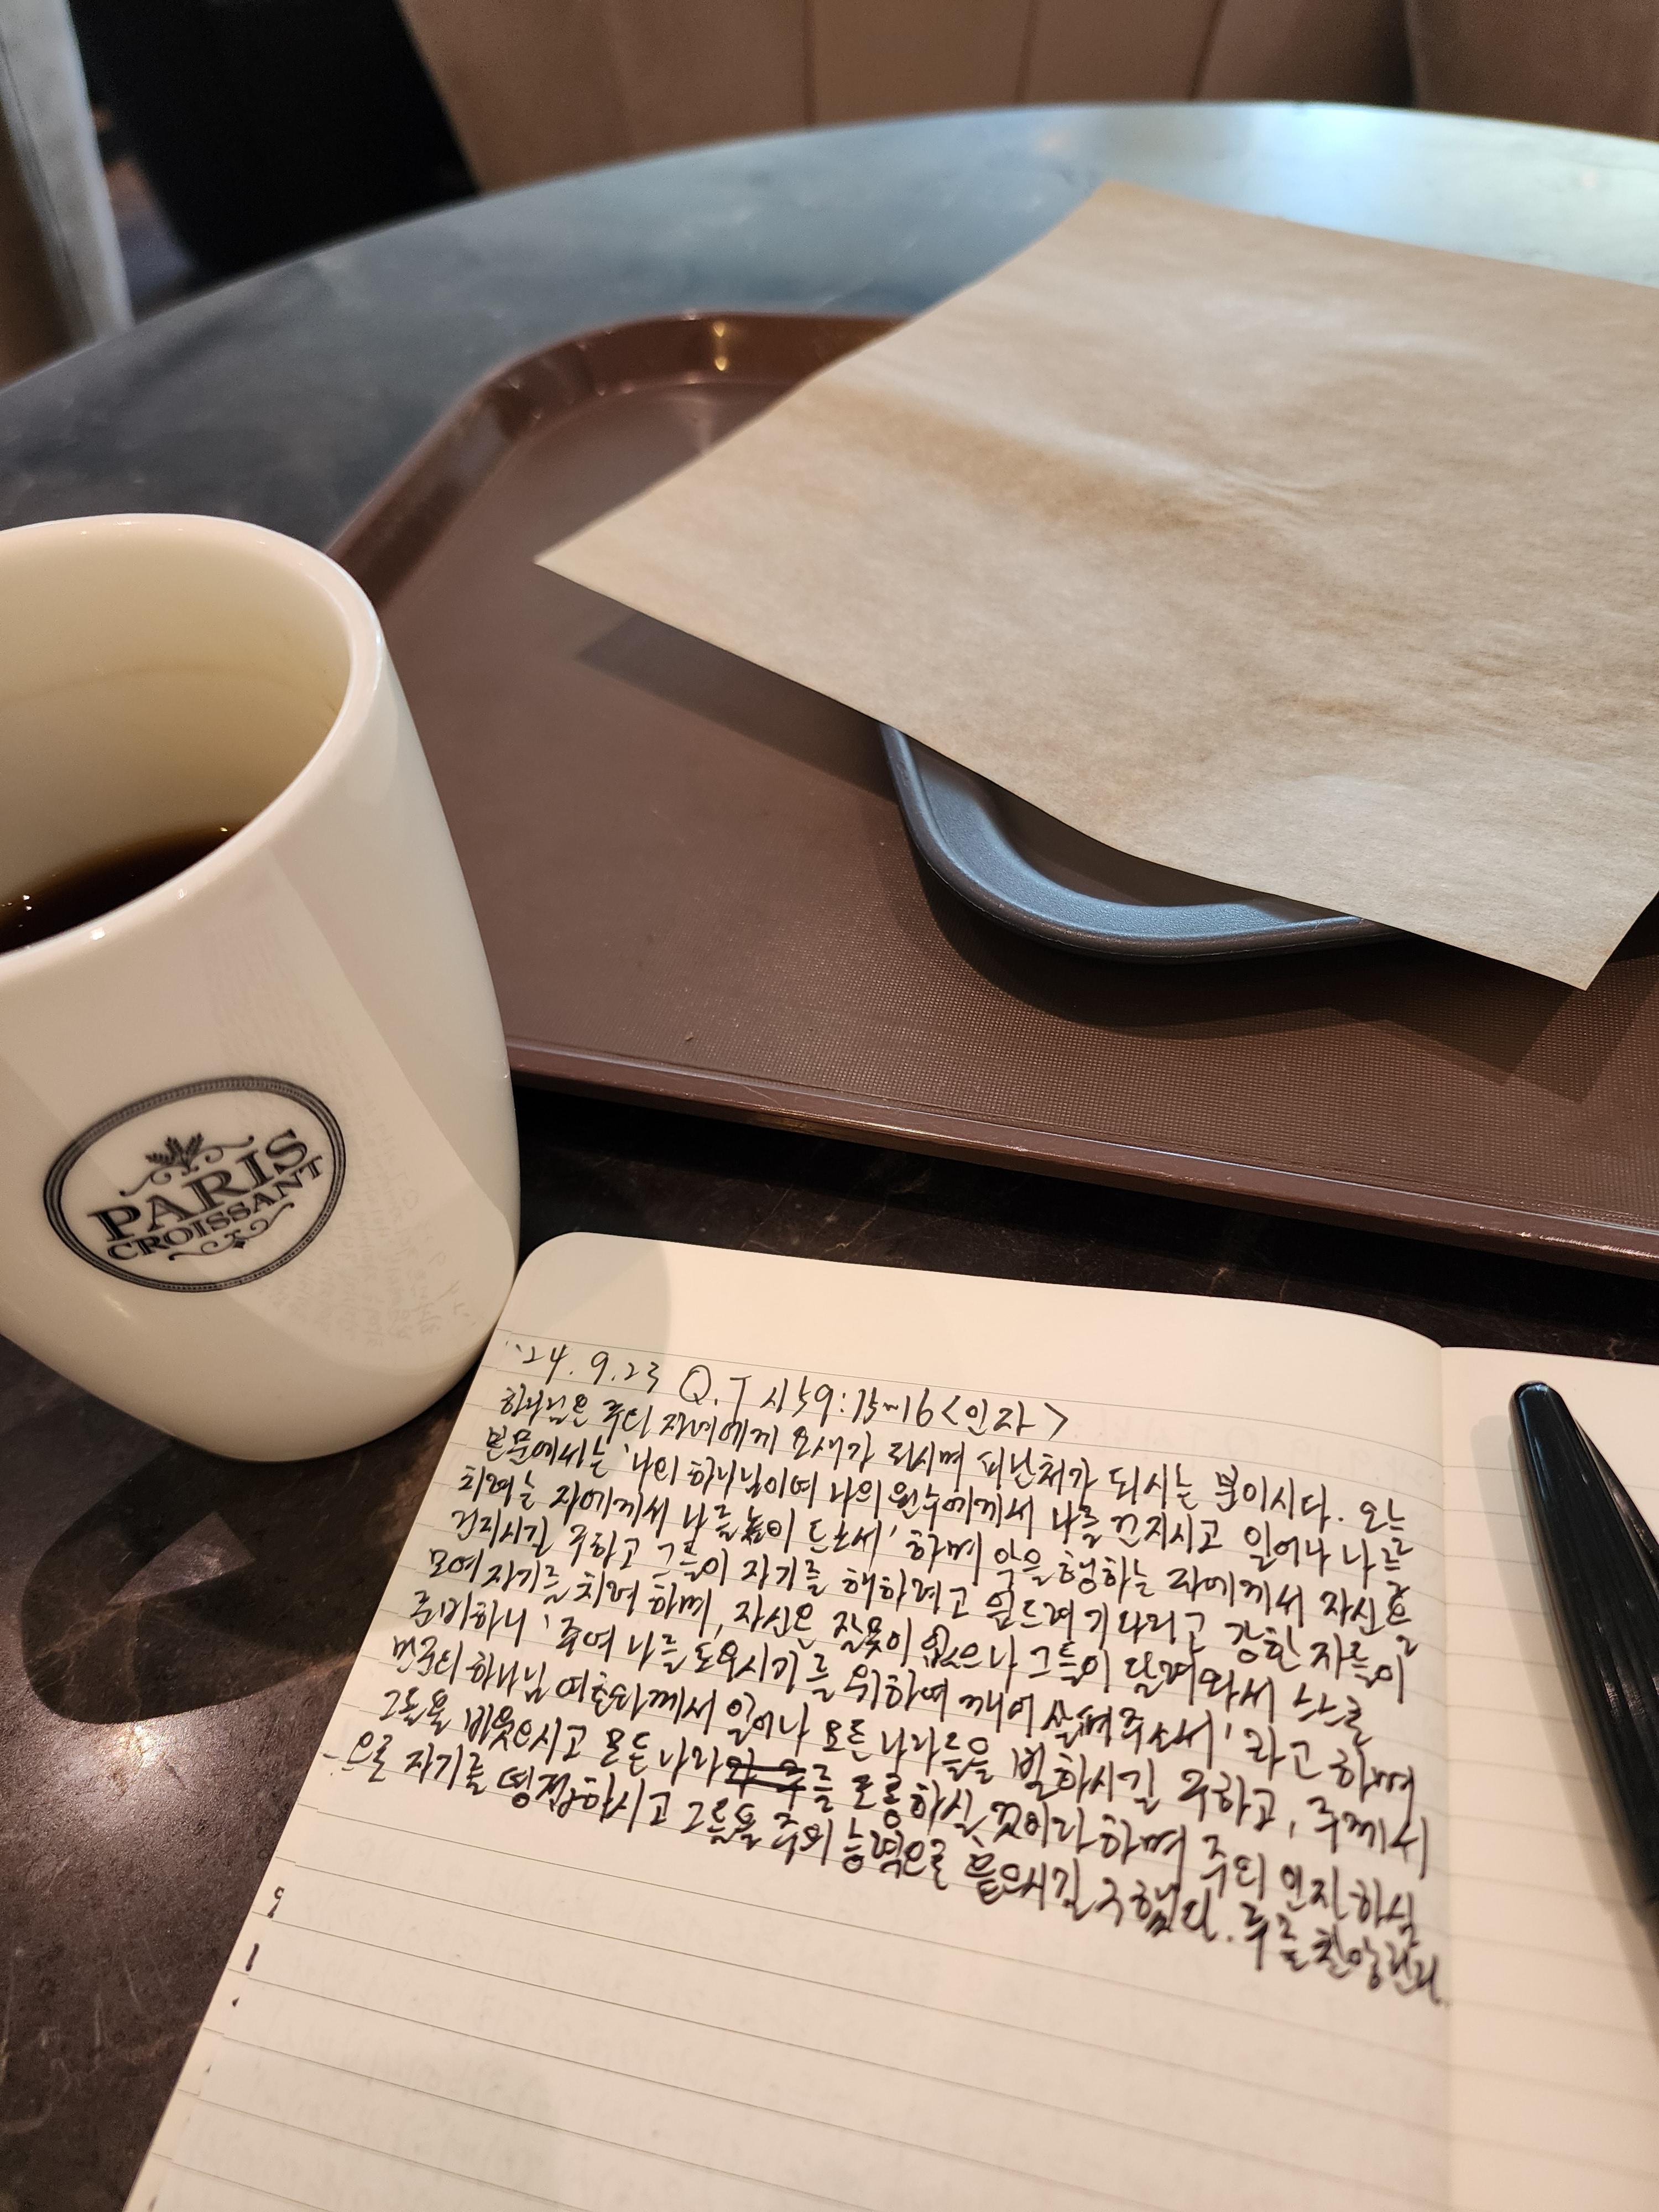 PARIS
CROISSANT
'24. 9. 23 Q.T 시59:15~16 <인자>
하나님은 주의 자녀에게 요새가 되시며 피난처가 되시는 분이시다. 오늘
본문에서는 '나의 하나님이여 나의 원수에게서 나를 건지시고 일어나 나를
치려는 자에게서 나를 높이 드소서' 하며 악을 행하는 자에게서 자신을
건지시길 구하고 그들이 자기를 해하려고 엎드려 기다리고 강한 자들이
모여 자기를 치려 하며, 자신은 잘못이 없으나 그들이 달려와서 스스로
준비하니 '주여 나를 도우시기를 위하여 깨어 살펴주소서' 라고 하며
만군의 하나님 여호와께서 일어나 모든 나라들을 벌하시길 구하고, 주께서
그들을 비웃으시고 모든 나라를 조롱하실 것이라 하며 주의 인자하심
으로 자기를 영접하시고 그들을 주의 능력으로 흩으시길 구했다. 주를 찬양한다.